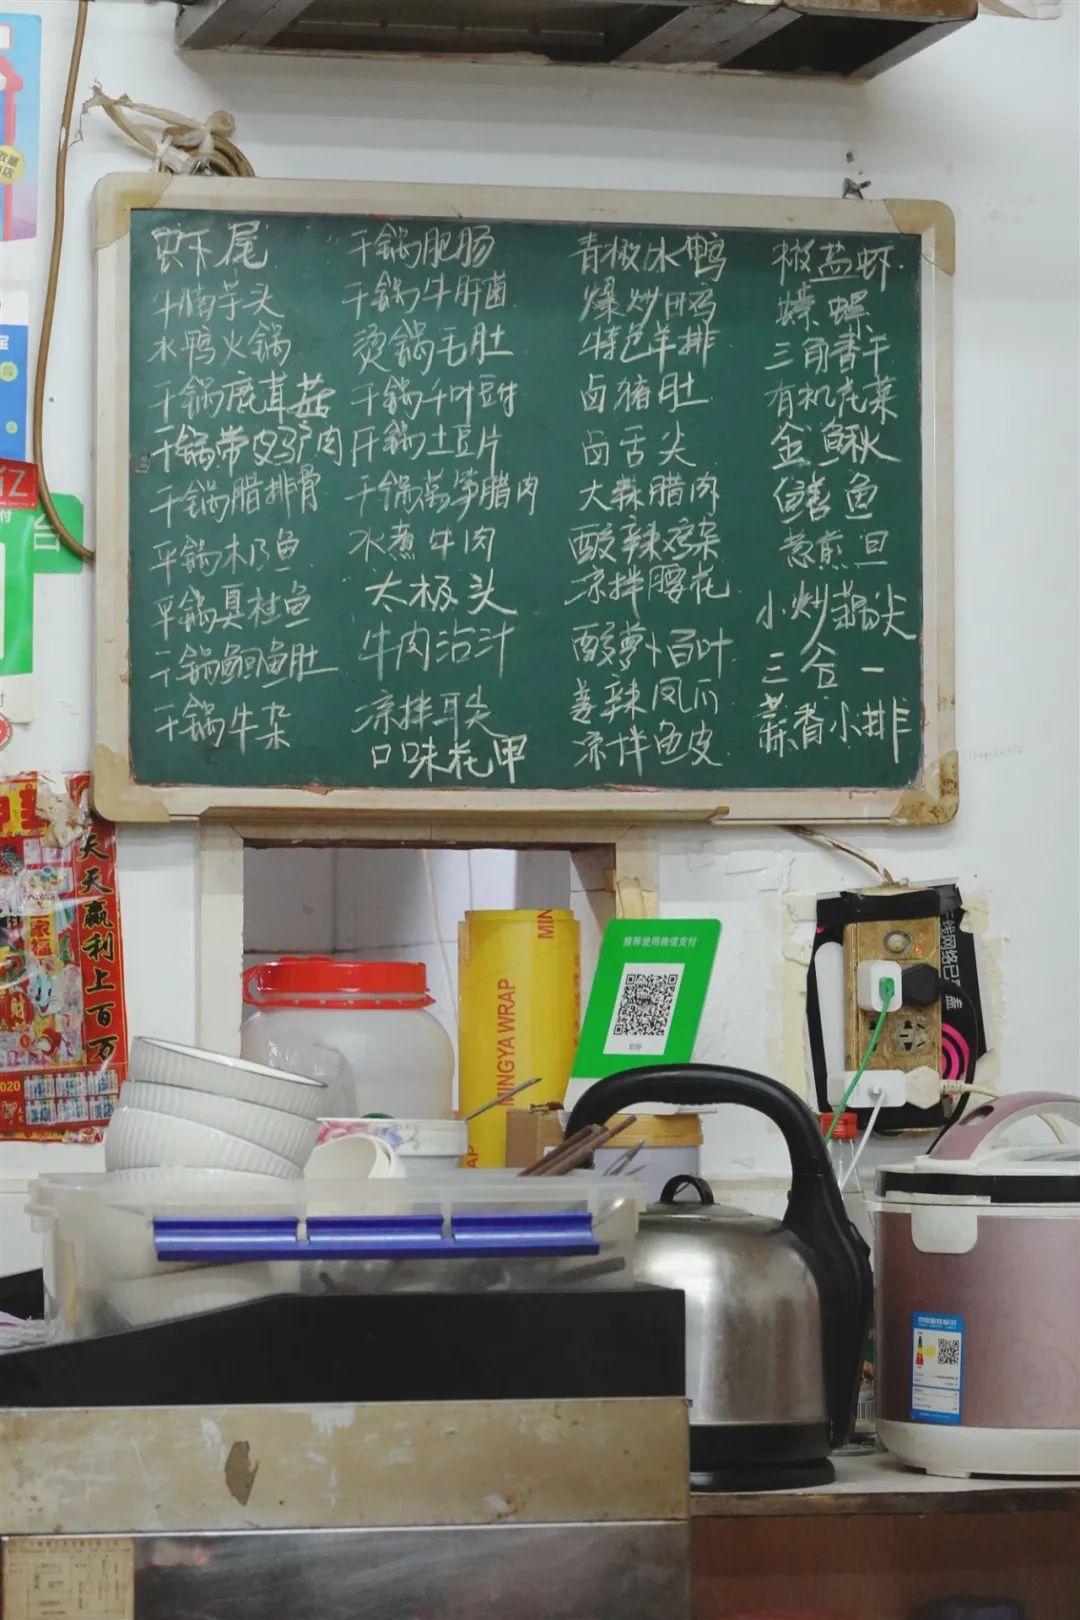 虾尾
牛腩芋头
水鸭火锅
干锅鹿茸菇
干锅带皮驴肉
干锅腊排骨
干锅臭桂鱼
干锅鮰鱼肚
干锅牛杂
干锅肥肠
干锅牛肝菌
烫锅毛肚
干锅千叶豆付
干锅土豆片
干锅莴笋腊肉
水煮牛肉
太极头
牛肉沾汁
凉拌耳尖
口味花甲
青椒水鸭
爆炒田鸡
特色羊排
卤猪肚
卤舌尖
大蒜腊肉
酸辣鸡杂
凉拌腰花
酸萝卜百叶
姜辣凤爪
凉拌鱼皮
椒盐虾
三角香干
有机花菜
鳝鱼
葱煎旦
三合一
蒜香小排
天天赢利上百万
2020
MINGYA WRAP
推荐使用微信支付